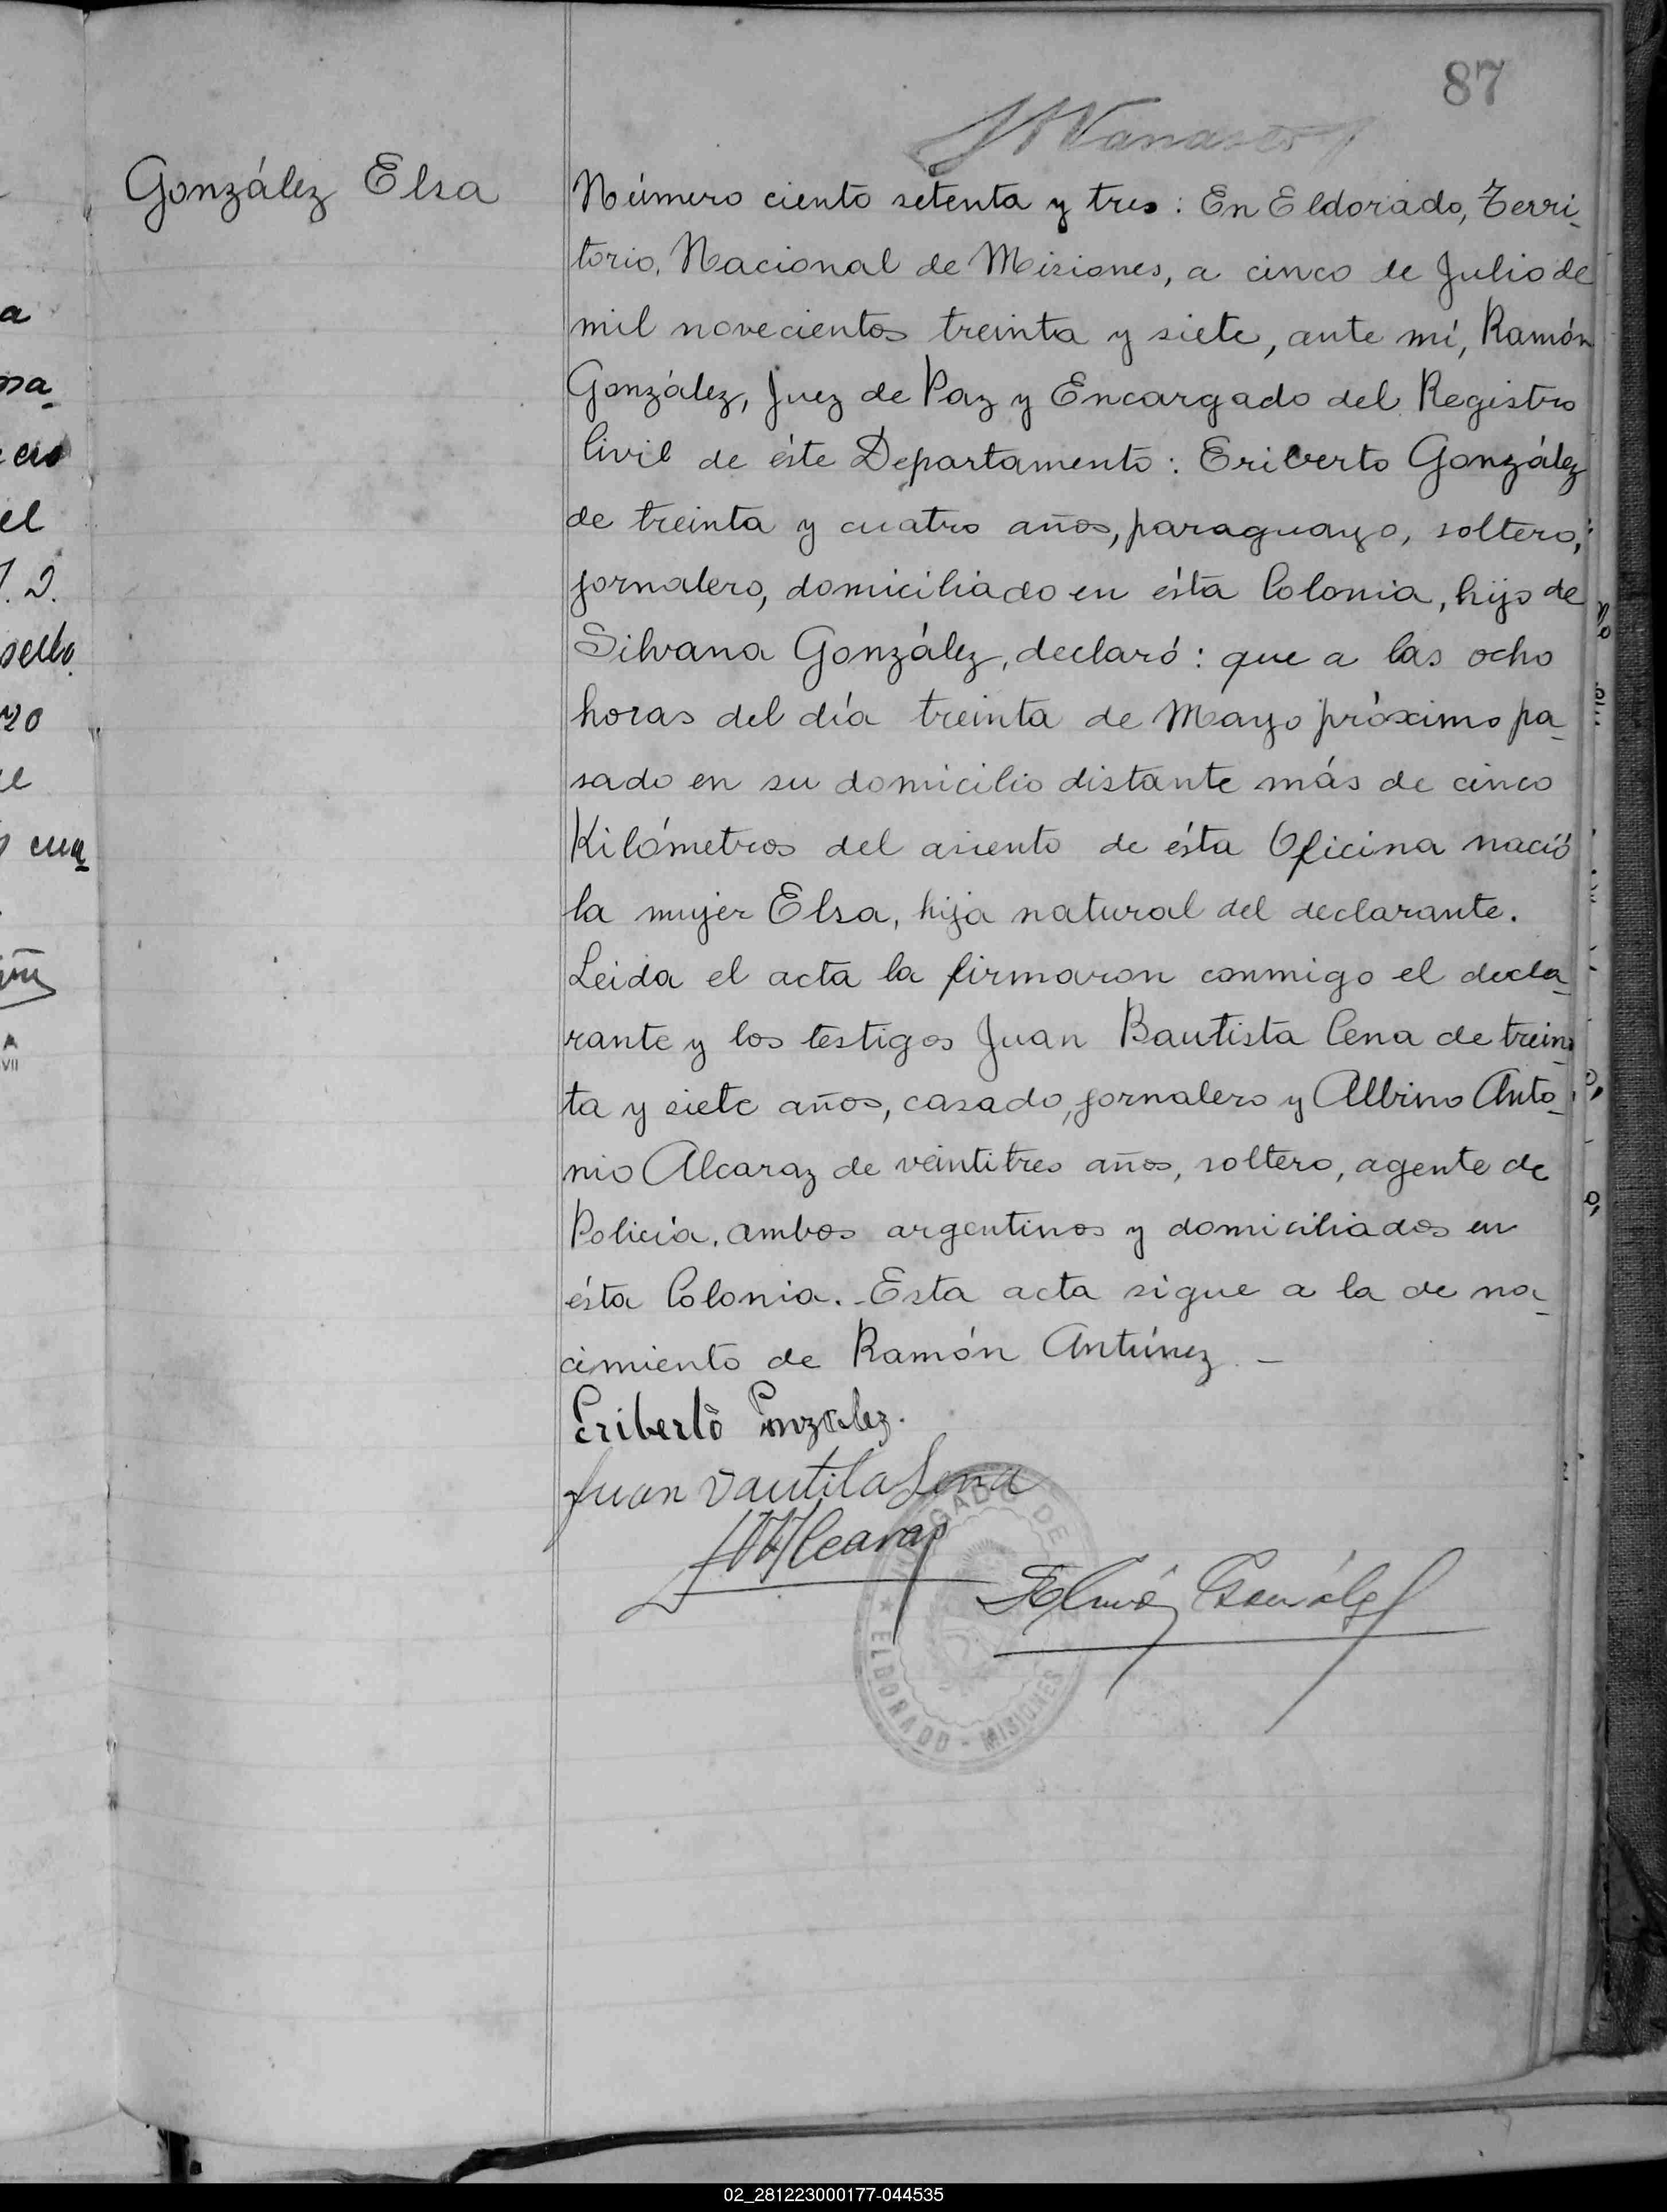 87
González Elsa
Número ciento setenta y tres: En Eldorado, Terri-
torio, Nacional de Misiones, a cinco de Julio de
mil novecientos treinta y siete, ante mí, Ramón
González, Juez de Paz y Encargado del Registro
Civil de éste Departamento: Eriberto González
de treinta y cuatro años, paraguayo, soltero,
jornalero, domiciliado en ésta Colonia, hijo de
Silvana González, declaró: que a las ocho
horas del día treinta de Mayo próximo pa-
sado en su domicilio distante más de cinco
Kilómetros del asiento de ésta Oficina nació
la mujer Elsa, hija natural del declarante.
Leida el acta la firmaron conmigo el decla-
rante y los testigos Juan Bautista Cena de trein-
ta y siete años, casado, jornalero y Albino Anto-
nio Alcaraz de veintitres años, soltero, agente de
Policía, ambos argentinos y domiciliados en
ésta Colonia.- Esta acta sigue a la de na-
cimiento de Ramón Antúnez -
Eriberto Gonzalez.
Juan Vautila Sena
Alcaraz
Ramón González
JUZGADO DE
ELDORADO - MISIONES
a
el
sello
20
cua
VII
02_281223000177-044535